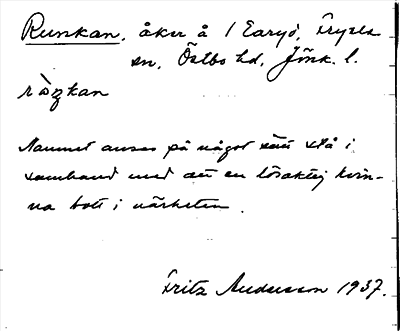 Runkan, åker å 1 Earyd, Tryserd
sn, Östbo hd, Jönk. l.
Namnet anses på något sätt stå i
samband med att en lösaktig kvin-
na bott i närheten.
Fritz Andersson 1937.